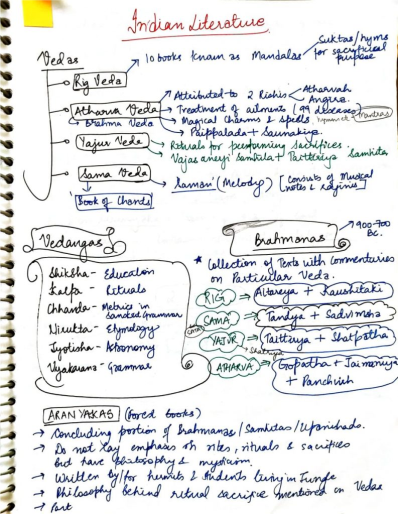 Indian Literature
Vedas
10 books known as Mandalas
Suktas/hymns for sacrificial purpose
Rig Veda
Atharva Veda
Brahma Veda
Attributed to 2 Rishis
Atharvah
Angira.
Treatment of ailments (99 diseases)
Magical charms & spells
mantras
Paippalada + Saunakiya.
Yajur Veda
Rituals for performing sacrifices.
Vajasaneyi Samhita + Taittiriya Samhita
Sama Veda
Saman (Melody) [Consists of Musical notes & raginis]
Book of Chants
Vedangas
Shiksha - Education
Kalpa - Rituals
Chhanda - Metrics in Sanskrit Grammar
Nirukta - Etymology
Jyotisha - Astronomy
Vyakarana - Grammar
Brahmanas
900-700 BC.
* Collection of Texts with Commentaries
on Particular Veda.
RIG ⇒ Aitareya + Kaushitaki
SAMA ⇒ Tandya + Sadvimsha
YAJUR ⇒ Taittiriya + Shatpatha
ATHARVA ⇒ Gopatha + Jaiminiya
+ Panchvish
ARANYAKAS (Forest books)
→ Concluding portion of Brahmanas/Samhitas/Upanishads.
→ Do not lay emphasis on rites, rituals & sacrifices
but have philosophy & mysticism.
→ Written by/for hermits & students living in Jungle
→ Philosophy behind ritual sacrifice mentioned in Vedas
→ Part